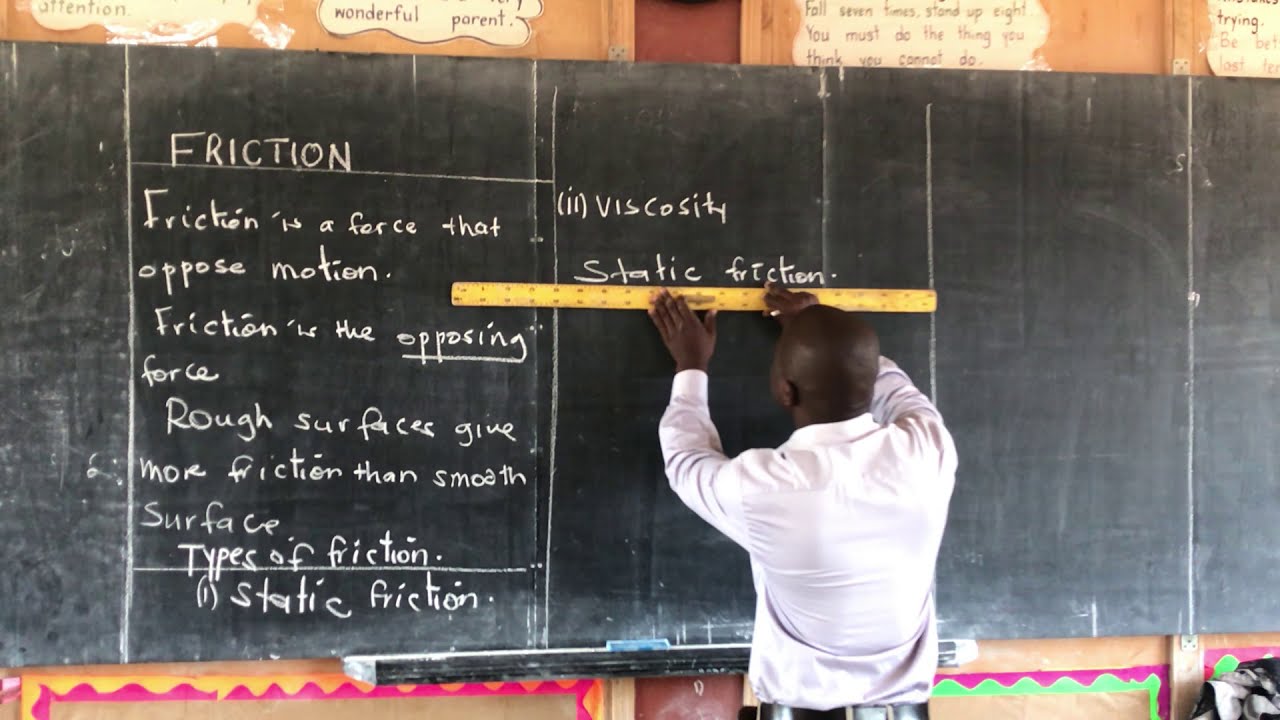 attention.
wonderful parent.
Fall seven times, stand up eight.
You must do the thing you
think you cannot do.
trying.
Be
last
FRICTION
Friction is a force that
oppose motion.
Friction is the opposing
force
Rough surfaces give
more friction than smooth
surface
Types of friction.
(i) Static friction.
(ii) Viscosity
Static friction.